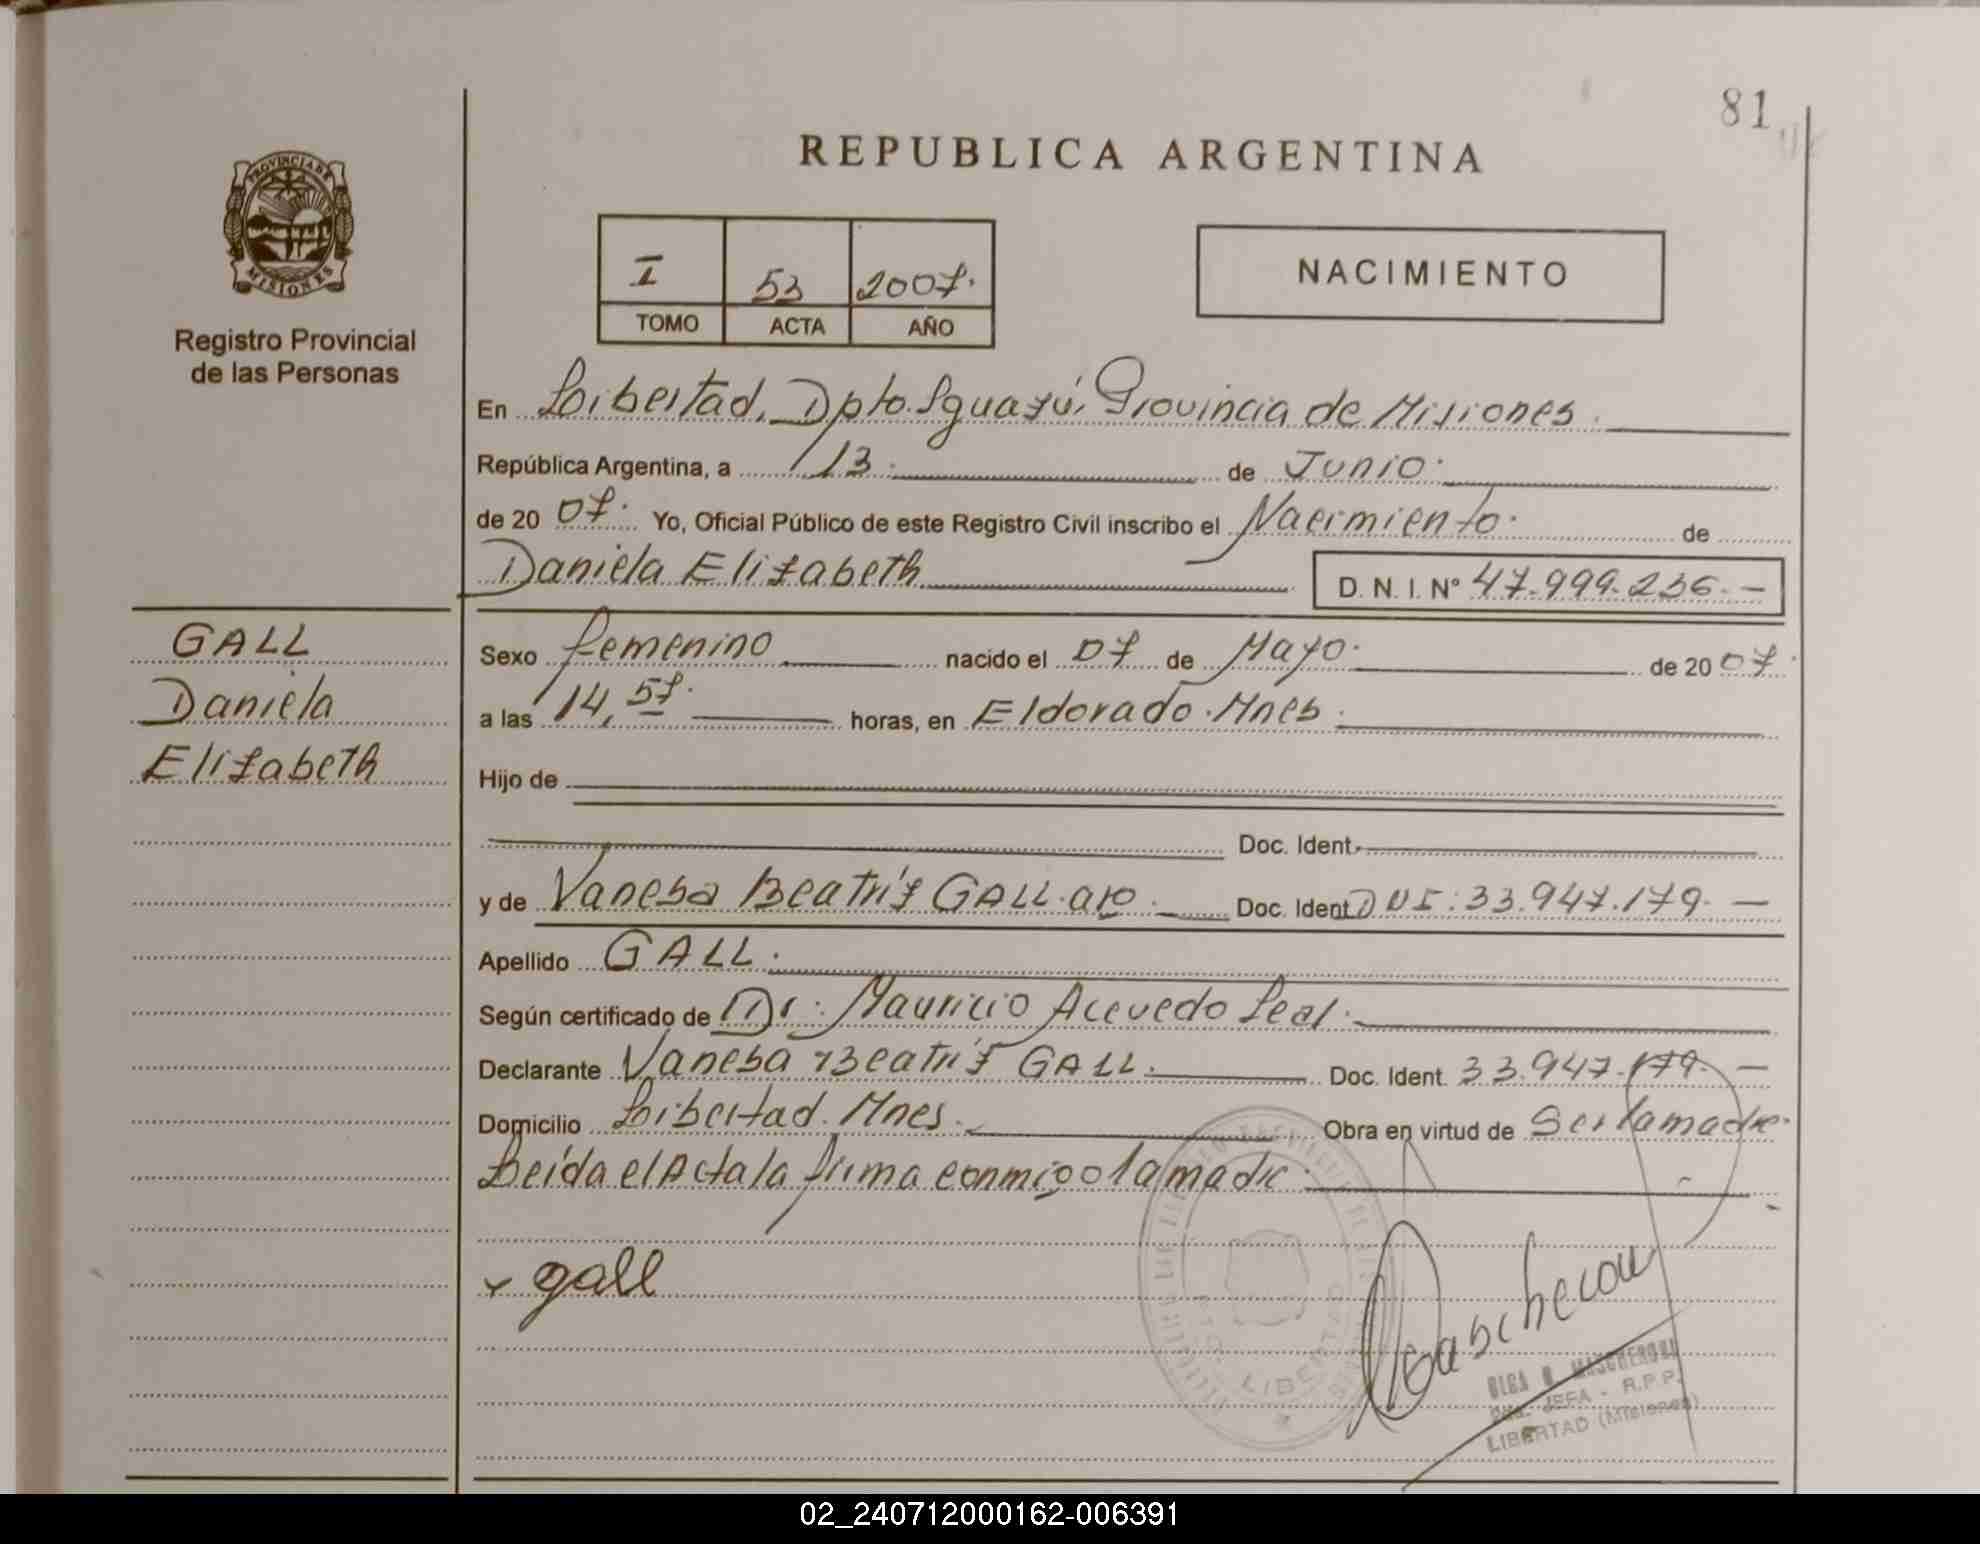 81
REPUBLICA ARGENTINA
PROVINCIA DE
MISIONES
Registro Provincial
de las Personas
I 53 2007.
TOMO ACTA AÑO
NACIMIENTO
En Libertad, Dpto. Iguazú, Provincia de Misiones.
República Argentina, a 13 de Junio.
de 20 07. Yo, Oficial Público de este Registro Civil inscribo el Nacimiento. de
Daniela Elizabeth D. N. I. Nº 47.999.236.-
GALL
Daniela
Elizabeth
Sexo femenino nacido el 07 de Mayo. de 20 07.
a las 14,57. horas, en Eldorado. Mnes.
Hijo de
Doc. Ident.
y de Vanesa Beatríz GALL. arg. Doc. Ident. DNI: 33.947.179. -
Apellido GALL.
Según certificado de Dr. Mauricio Acevedo Leal.
Declarante Vanesa Beatríz GALL. Doc. Ident. 33.947.179. -
Domicilio Libertad. Mnes. Obra en virtud de Ser la madre.
Leída el Acta la firma conmigo la madre.
x gall
LIBERTAD
OLGA MASCHERONI
JEFA - R.P.P.
LIBERTAD (Misiones)
02_240712000162-006391